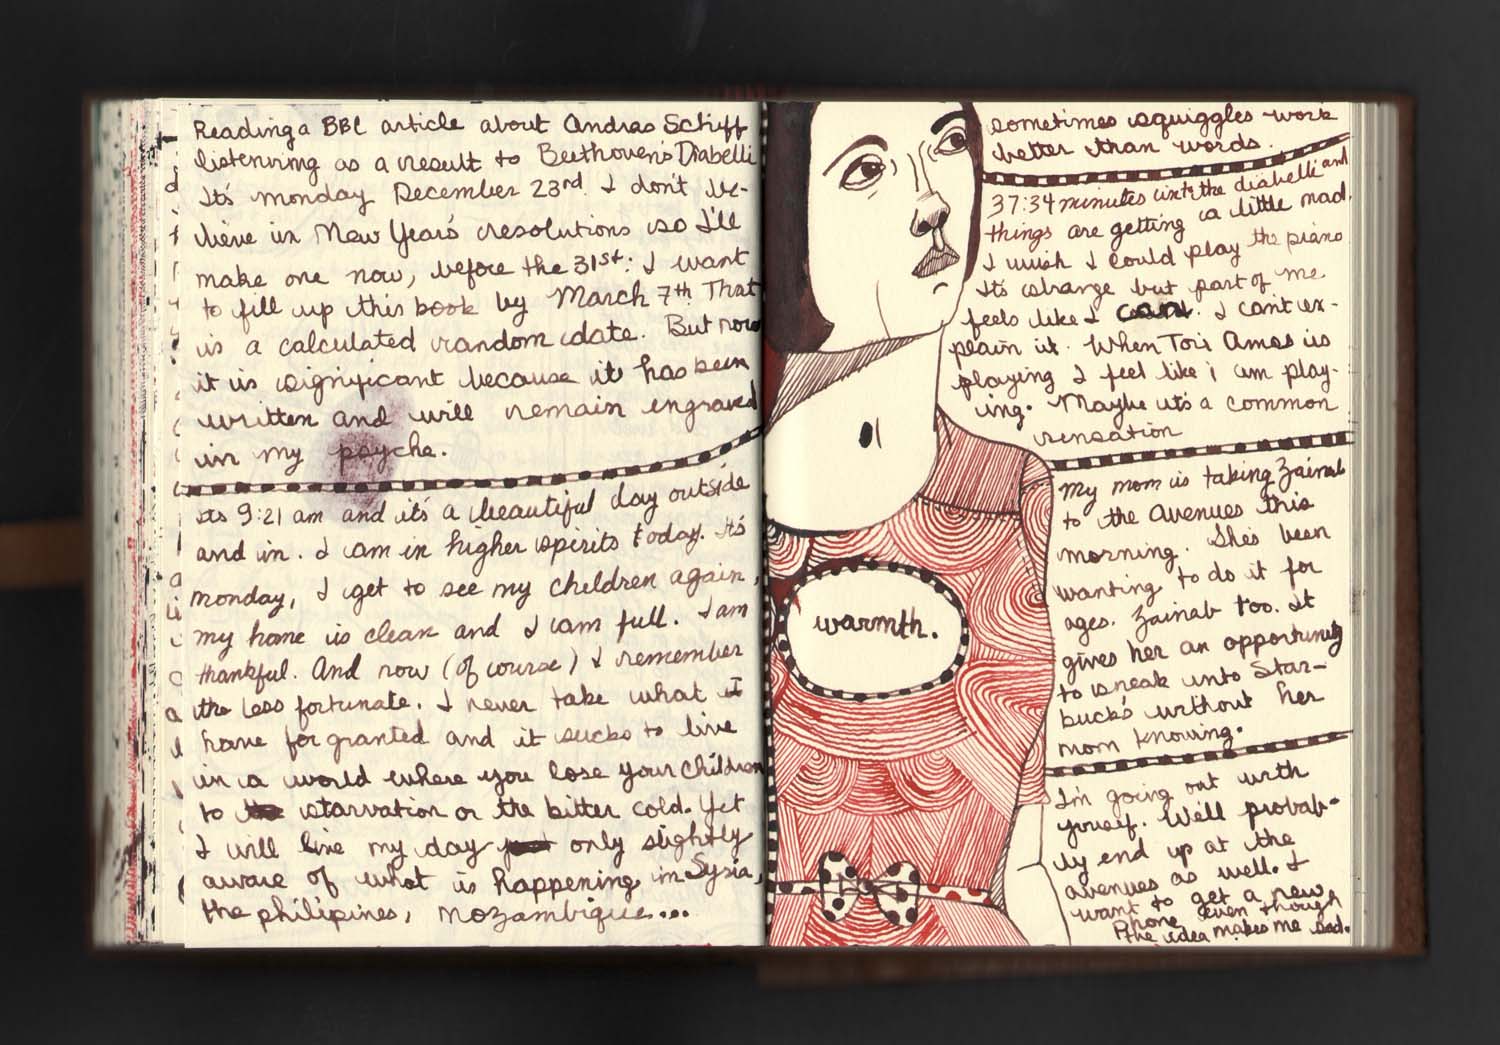 Reading a BBC article about Andras Schiff
listening as a result to Beethoven's Diabelli
It's monday December 23rd. I don't be-
lieve in New Year's resolutions so I'll
make one now, before the 31st: I want
to fill up this book by March 7th. That
is a calculated random date. But now
it is significant because it has been
written and will remain engraved
in my psyche.
its 9:21 am and it's a beautiful day outside
and in. I am in higher spirits today. It's
monday, I get to see my children again,
my home is clean and I am full. I am
thankful. And now (of course) I remember
the less fortunate. I never take what I
have for granted and it sucks to live
in a world where you lose your children
to starvation or the bitter cold. Yet
I will live my day only slightly
aware of what is happening in Syria,
the philipines, Mozambique...
warmth.
sometimes squiggles work
better than words.
37:34 minutes into the diabelli and
things are getting a little mad.
I wish I could play the piano
It's strange but part of me
feels like I can. I can't ex-
plain it. When Tori Amos is
playing I feel like i am play-
ing. Maybe it's a common
sensation
My mom is taking Zainab
to the avenues this
morning. She's been
wanting to do it for
ages. Zainab too. It
gives her an opportunity
to sneak into Star-
buck's without her
mom knowing.
I'm going out with
yousif. We'll probab-
ly end up at the
avenues as well. I
want to get a new
phone even though
the idea makes me sad.